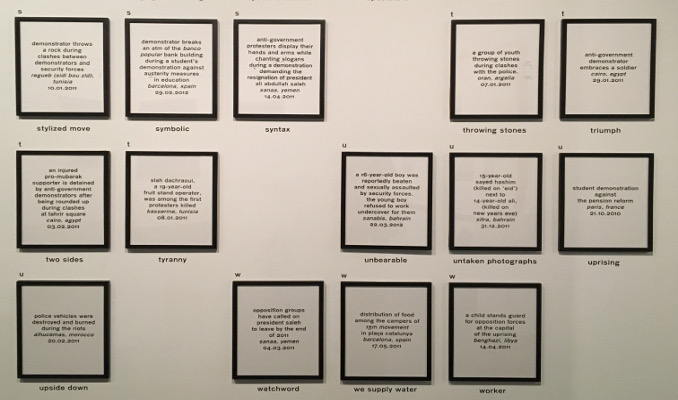 s
demonstrator throws
a rock during
clashes between
demonstrators and
security forces
regueb (sidi bou zid),
tunisia
10.01.2011
stylized move
s
demonstrator breaks
an atm of the banco
popular bank building
during a student's
demonstration against
austerity measures
in education
barcelona, spain
29.02.2012
symbolic
s
anti-government
protesters display their
hands and arms while
chanting slogans
during a demonstration
demanding the
resignation of president
ali abdullah saleh
sanaa, yemen
14.04.2011
syntax
t
a group of youth
throwing stones
during clashes
with the police.
oran, argelia
07.01.2011
throwing stones
t
anti-government
demonstrator
embraces a soldier
cairo, egypt
29.01.2011
triumph
t
an injured
pro-mubarak
supporter is detained
by anti-government
demonstrators after
being rounded up
during clashes
at tahrir square
cairo, egypt
03.02.2011
two sides
t
slah dachraoui,
a 19-year-old
fruit stand operator,
was among the first
protesters killed
kasserine, tunisia
08.01.2011
tyranny
u
a 16-year-old boy was
reportedly beaten
and sexually assaulted
by security forces.
the young boy
refused to work
undercover for them
sanabis, bahrain
22.03.2012
unbearable
u
15-year-old
sayed hashim
(killed on "eid")
next to
14-year-old ali,
(killed on
new years eve)
sitra, bahrain
31.12.2011
untaken photographs
u
student demonstration
against
the pension reform
paris, france
21.10.2010
uprising
u
police vehicles were
destroyed and burned
during the riots
alhucemas, morocco
20.02.2011
upside down
w
opposition groups
have called on
president saleh
to leave by the end
of 2011
sanaa, yemen
04.03.2011
watchword
w
distribution of food
among the campers of
15m movement
in plaça catalunya
barcelona, spain
17.05.2011
we supply water
w
a child stands guard
for opposition forces
at the capital
of the uprising
benghazi, libya
14.04.2011
worker